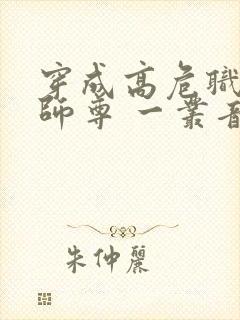 穿成高危職
師尊 一叢音
朱仲麗